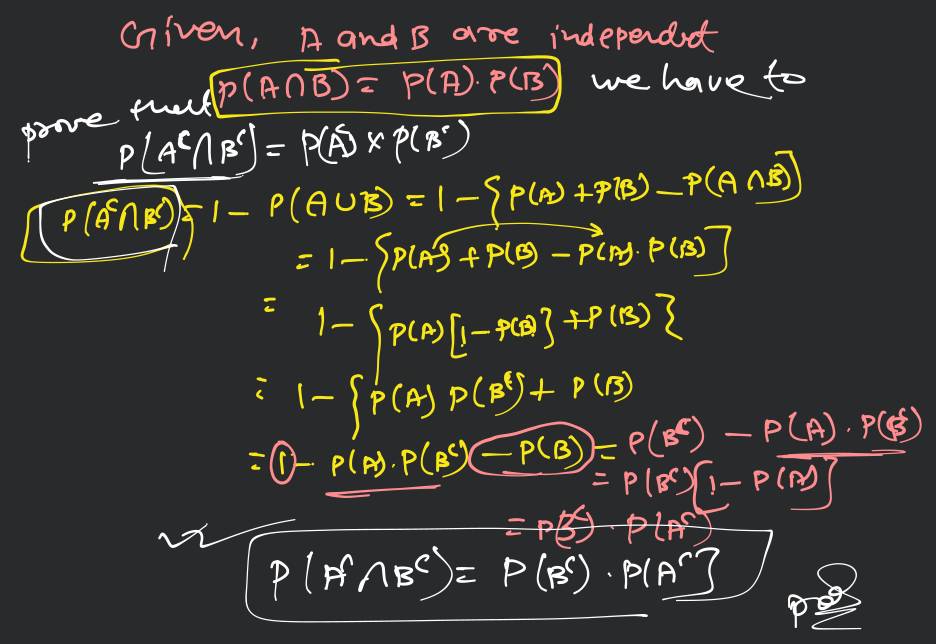 Given, A and B are independt
P(A∩B) = P(A).P(B) we have to
prove that
P[A^c∩B^c] = P(A^c) × P(B^c)
P(A^c∩B^c) = 1 - P(A∪B) = 1 - {P(A) + P(B) - P(A∩B)]
= 1 - {P(A) + P(B) - P(A).P(B)]
=
1 - {P(A)[1-P(B)} + P(B)}
= 1 - {P(A) P(B^c) + P(B)
= 1 - P(A).P(B^c) - P(B) = P(B^c) - P(A).P(B^c)
= P(B^c)[1 - P(A)]
= P(B^c) . P(A^c)
P(A^c∩B^c) = P(B^c).P(A^c]